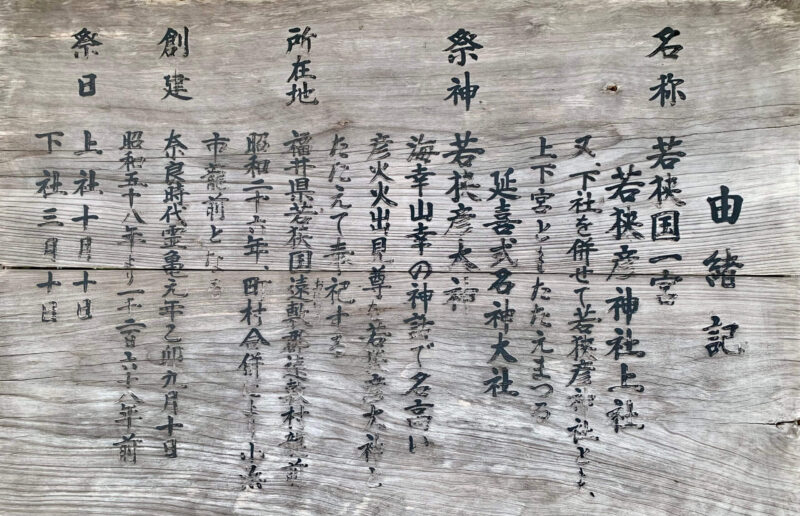 由緒記
名称 若狭国一宮
若狭彦神社上社
又、下社を併せて若狭彦神社とも、
上下宮ともたたえまつる
延喜式名神大社
祭神 若狭彦大神
海幸山幸の神話で名高い
彦火火出見尊を若狭彦大神と
たたえて奉祀する
所在地 福井県若狭国遠敷郡遠敷村龍前
昭和二十六年、町村合併により小浜
市龍前となる
創建 奈良時代霊亀元年乙卯九月十日
昭和五十八年より一千二百六十八年前
祭日 上社十月十日
下社三月十日